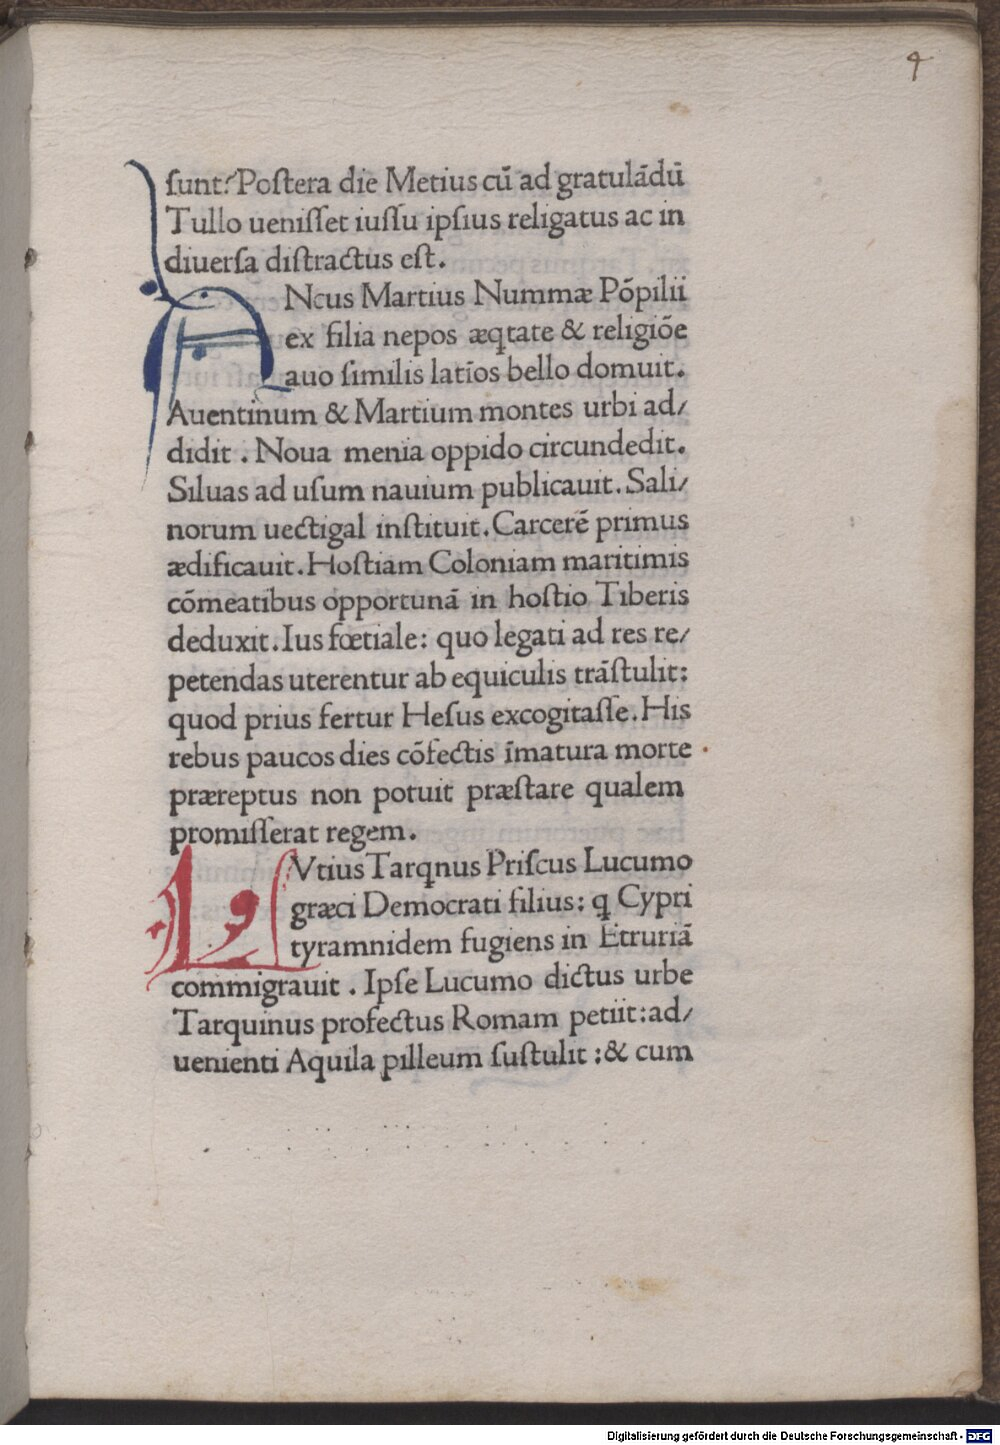 4
ſunt:ʼPoſtera die Metius cū ad gratulādū
Tullo ueniſſet iuſſu ipſius religatus ac in
diuerſa diſtractus eſt.
ANcus Martius Nummæ Pōpilii
ex filia nepos æqtate & religiōe
auo ſimilis latīos bello domuit.
Auentinum & Martium montes urbi ad/
didit . Noua menia oppido circundedit.
Siluas ad uſum nauium publicauit. Sali/
norum uectigal inſtituit. Carcerē primus
ædificauit. Hoſtiam Coloniam maritimis
cōmeatibus opportunā in hoſtio Tiberis
deduxit. Ius fœtiale: quo legati ad res re/
petendas uterentur ab equiculis trāſtulit:
quod prius fertur Heſus excogitaſſe. His
rebus paucos dies cōfectis īmatura morte
præreptus non potuit præſtare qualem
promiſſerat regem.
LVtius Tarqnus Priſcus Lucumo
græci Democrati filius: q Cypri
tyramnidem fugiens in Etruriā
commigrauit . Ipſe Lucumo dictus urbe
Tarquinus profectus Romam petiit: ad/
uenienti Aquila pilleum ſuſtulit : & cum
Digitalisierung gefördert durch die Deutsche Forschungsgemeinschaft - DFG